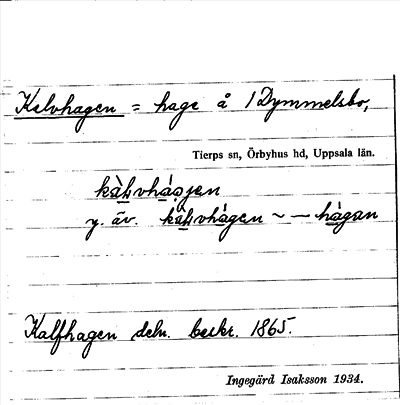 Kalvhagen = hage å /Dymmelsbo,
Tierps sn, Örbyhus hd, Uppsala län.
kàḷvháɡen
y. äv. kàḷvhágen ~ — hágan
Kalfhagen deln. beskr. 1865.
Ingegärd Isaksson 1934.